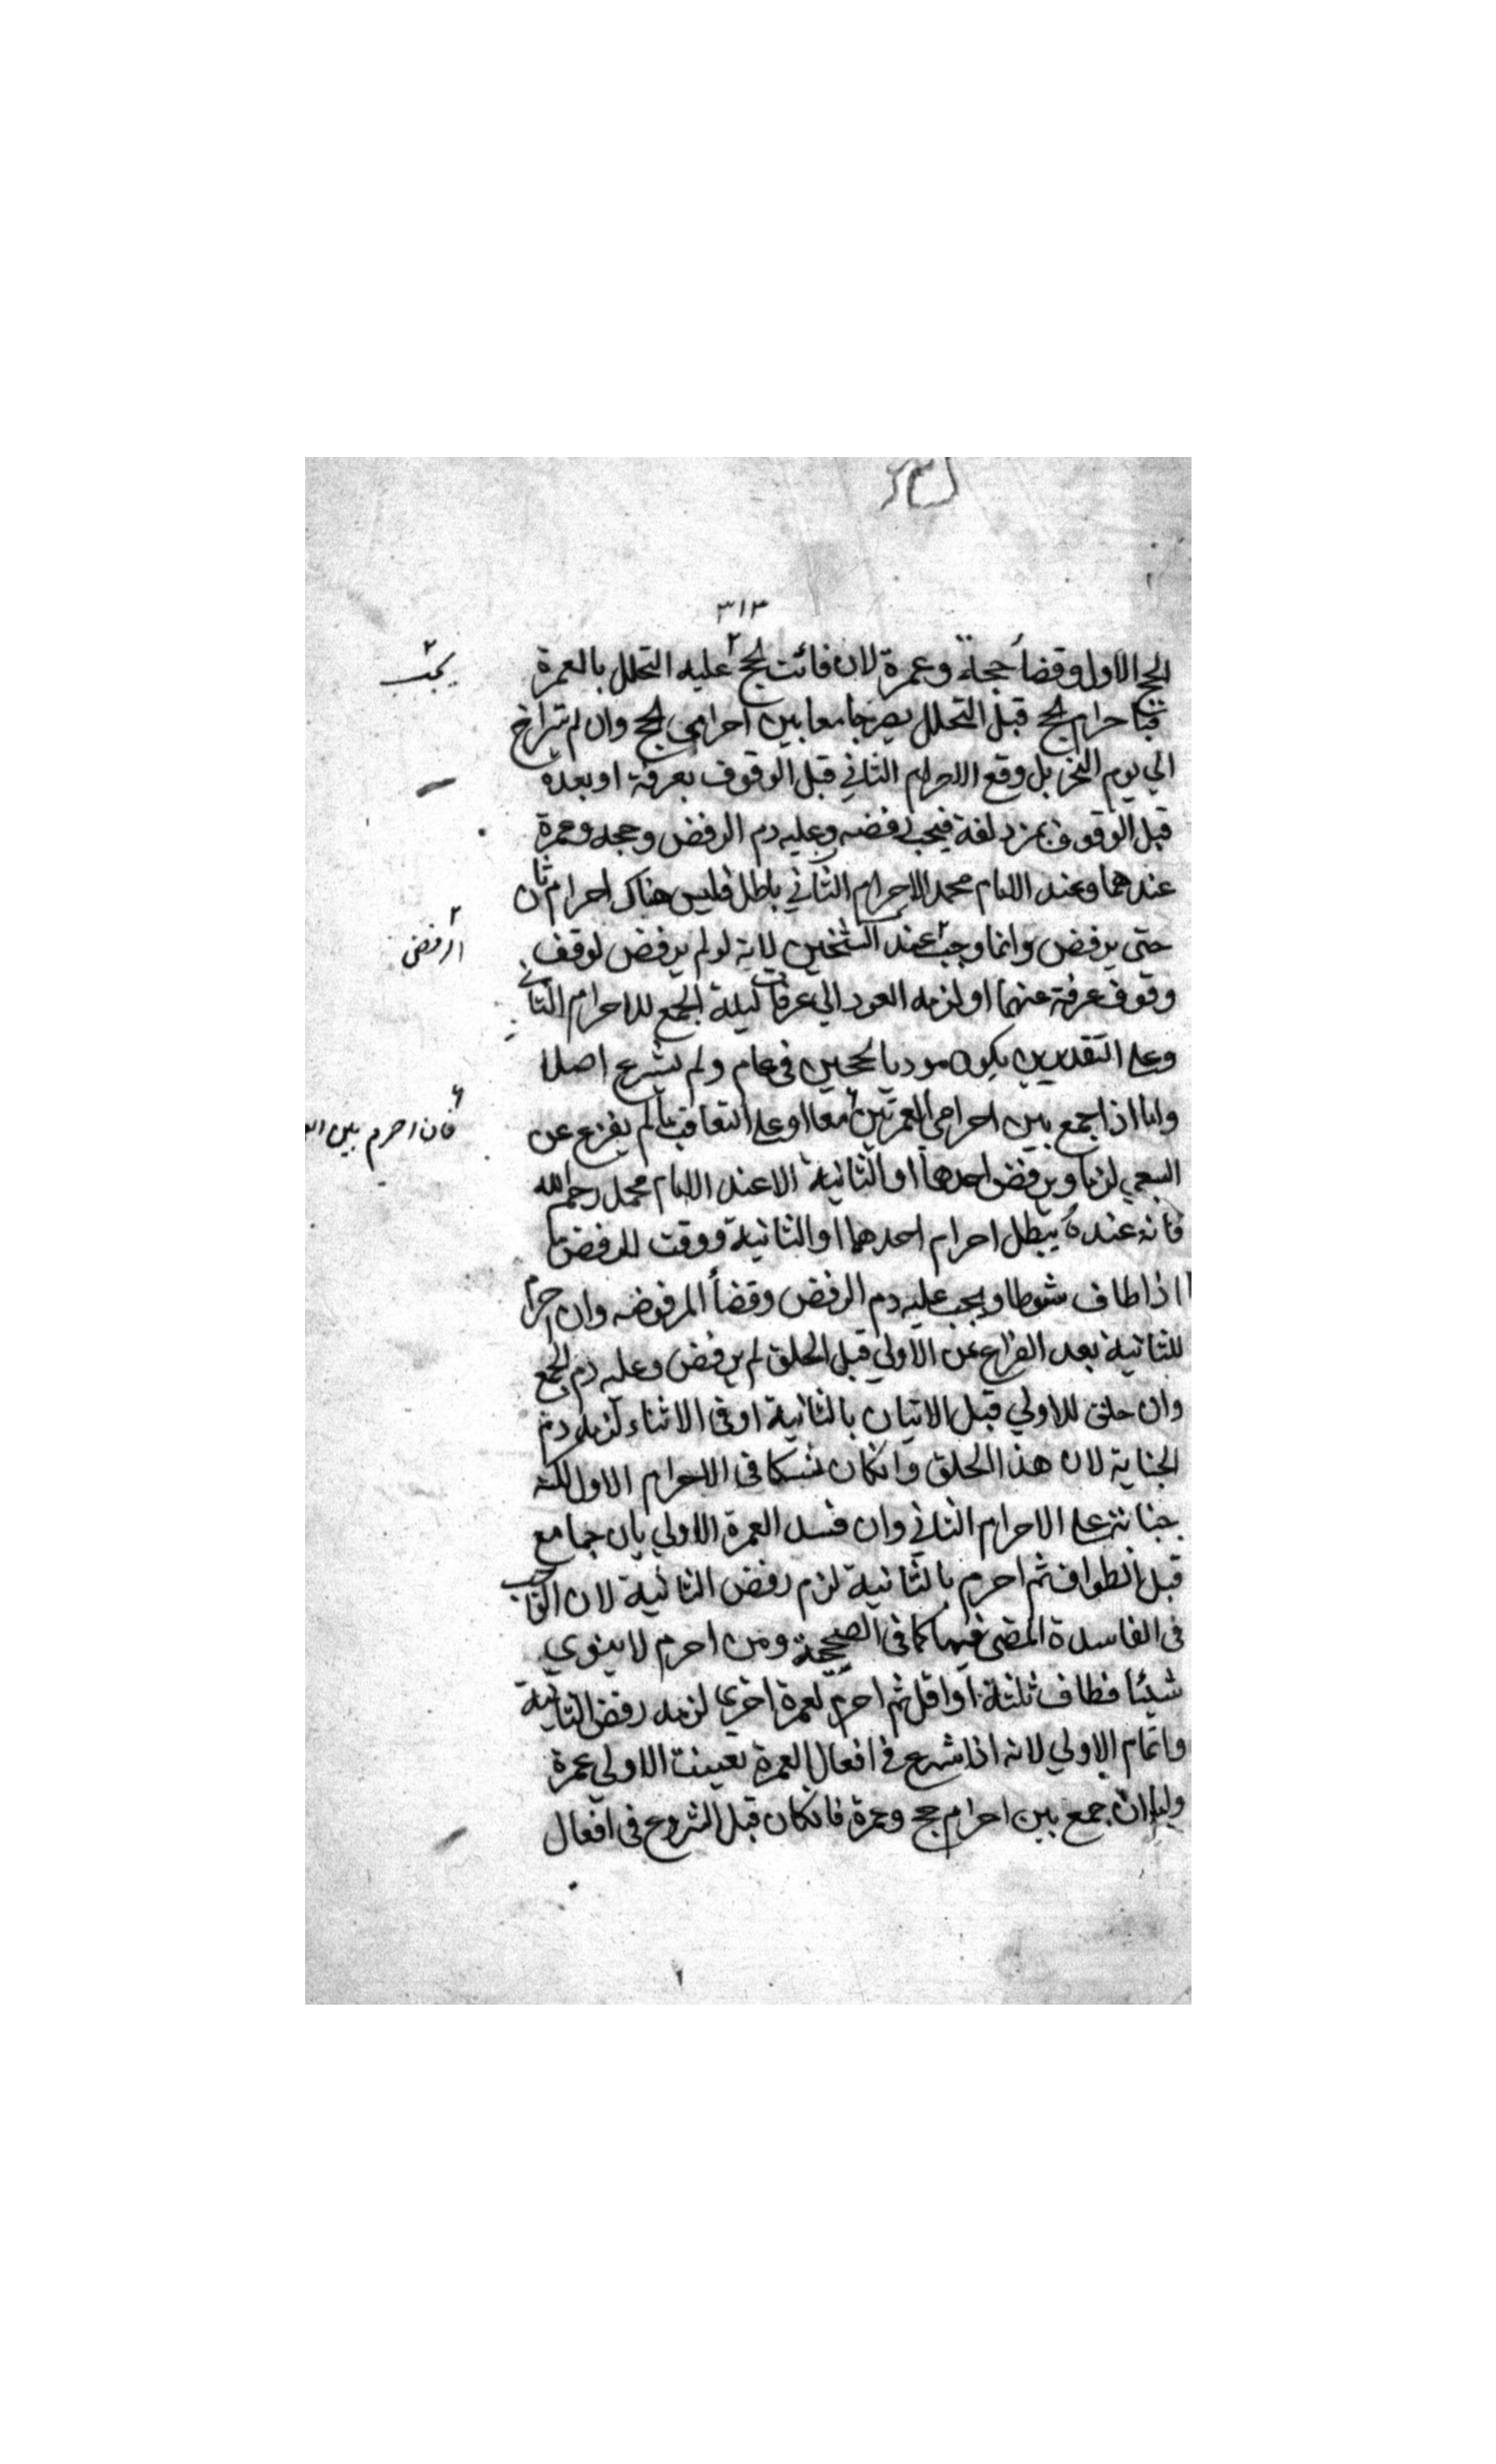 ٣١٣
الحج الاول وقضاء حجة وعمرة لان فائت الحج ٢ عليه التحلل بالعمرة
يجب ٢
فباحرام الحج قبل التحلل يصير جامعا بين احرامي الحج وان لم يتراخ
الي يوم النحر بل وقع الاحرام الثاني قبل الوقوف بعرفة او بعده
قبل الوقوف بمزدلفة فيجب رفضه وعليه دم الرفض وحجه وعمرة
عندهما وعند الامام محمد الاحرام الثاني باطل فليس هناك احرام ثان
حتى يرفض وانما وجب ٢ عند الشيخين لانه لو لم يرفض لوقف
الرفض ٢
وقوف عرفة عنهما او لزمه العود الي عرفات ليلة الجمع للاحرام الثاني
وعلى التقديرين يكون موديا لحجين في عام ولم يشرع اصلا
واما اذا جمع بين احرامي العمرتين معا او على التعاقب ما لم يفرغ عن
فان احرم بين
السعي لزما ويرفض احدهما او الثانية الا عند الامام محمد رحمه الله
فانه عنده يبطل احرام احدهما او الثانية ووقت للرفض ما
اذا طاف شوطا ويجب عليه دم الرفض وقضاء المرفوضه وان احرام
للثانية بعد الفراغ عن الاولي قبل الحلق لم يرفض وعليه دم الجمع
وان حلق للاولي قبل الاتيان بالثانية او في الاثناء لزمه دم
الجناية لان هذا الحلق وان كان نسكا في الاحرام الاول لكنه
جناية على الاحرام الثاني وان فسد العمرة الاولي بان جامع
قبل الطواف ثم احرم بالثانية لزم رفض الثانية لان
في الفاسدة المضى فيها كما في الصحيحة ومن احرم لا ينوي
شيئا فطاف ثلثة او اقل ثم احرم لعمرة اخرى لزمه رفض الثانية
واتمام الاولي لانه اذا شرع في افعال العمرة تعينت الاولي عمرة
واما ان جمع بين احرام حج وعمرة فان كان قبل الشروع في افعال